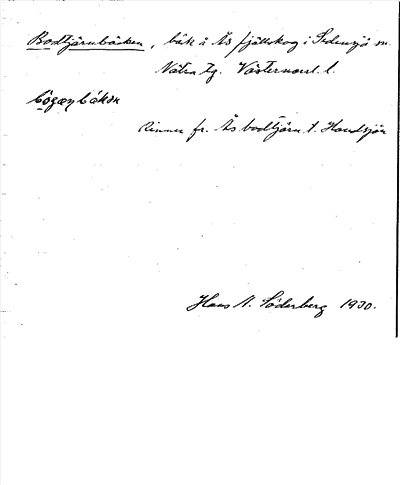 Bodtjärnbäcken, bäk å Ås fjällskog i Sidensjö sn.
Nätra tg. Västernorrl. l.
Rinner fr. Ås bodtjärn t. Handsjön
Hans N. Söderberg 1930.